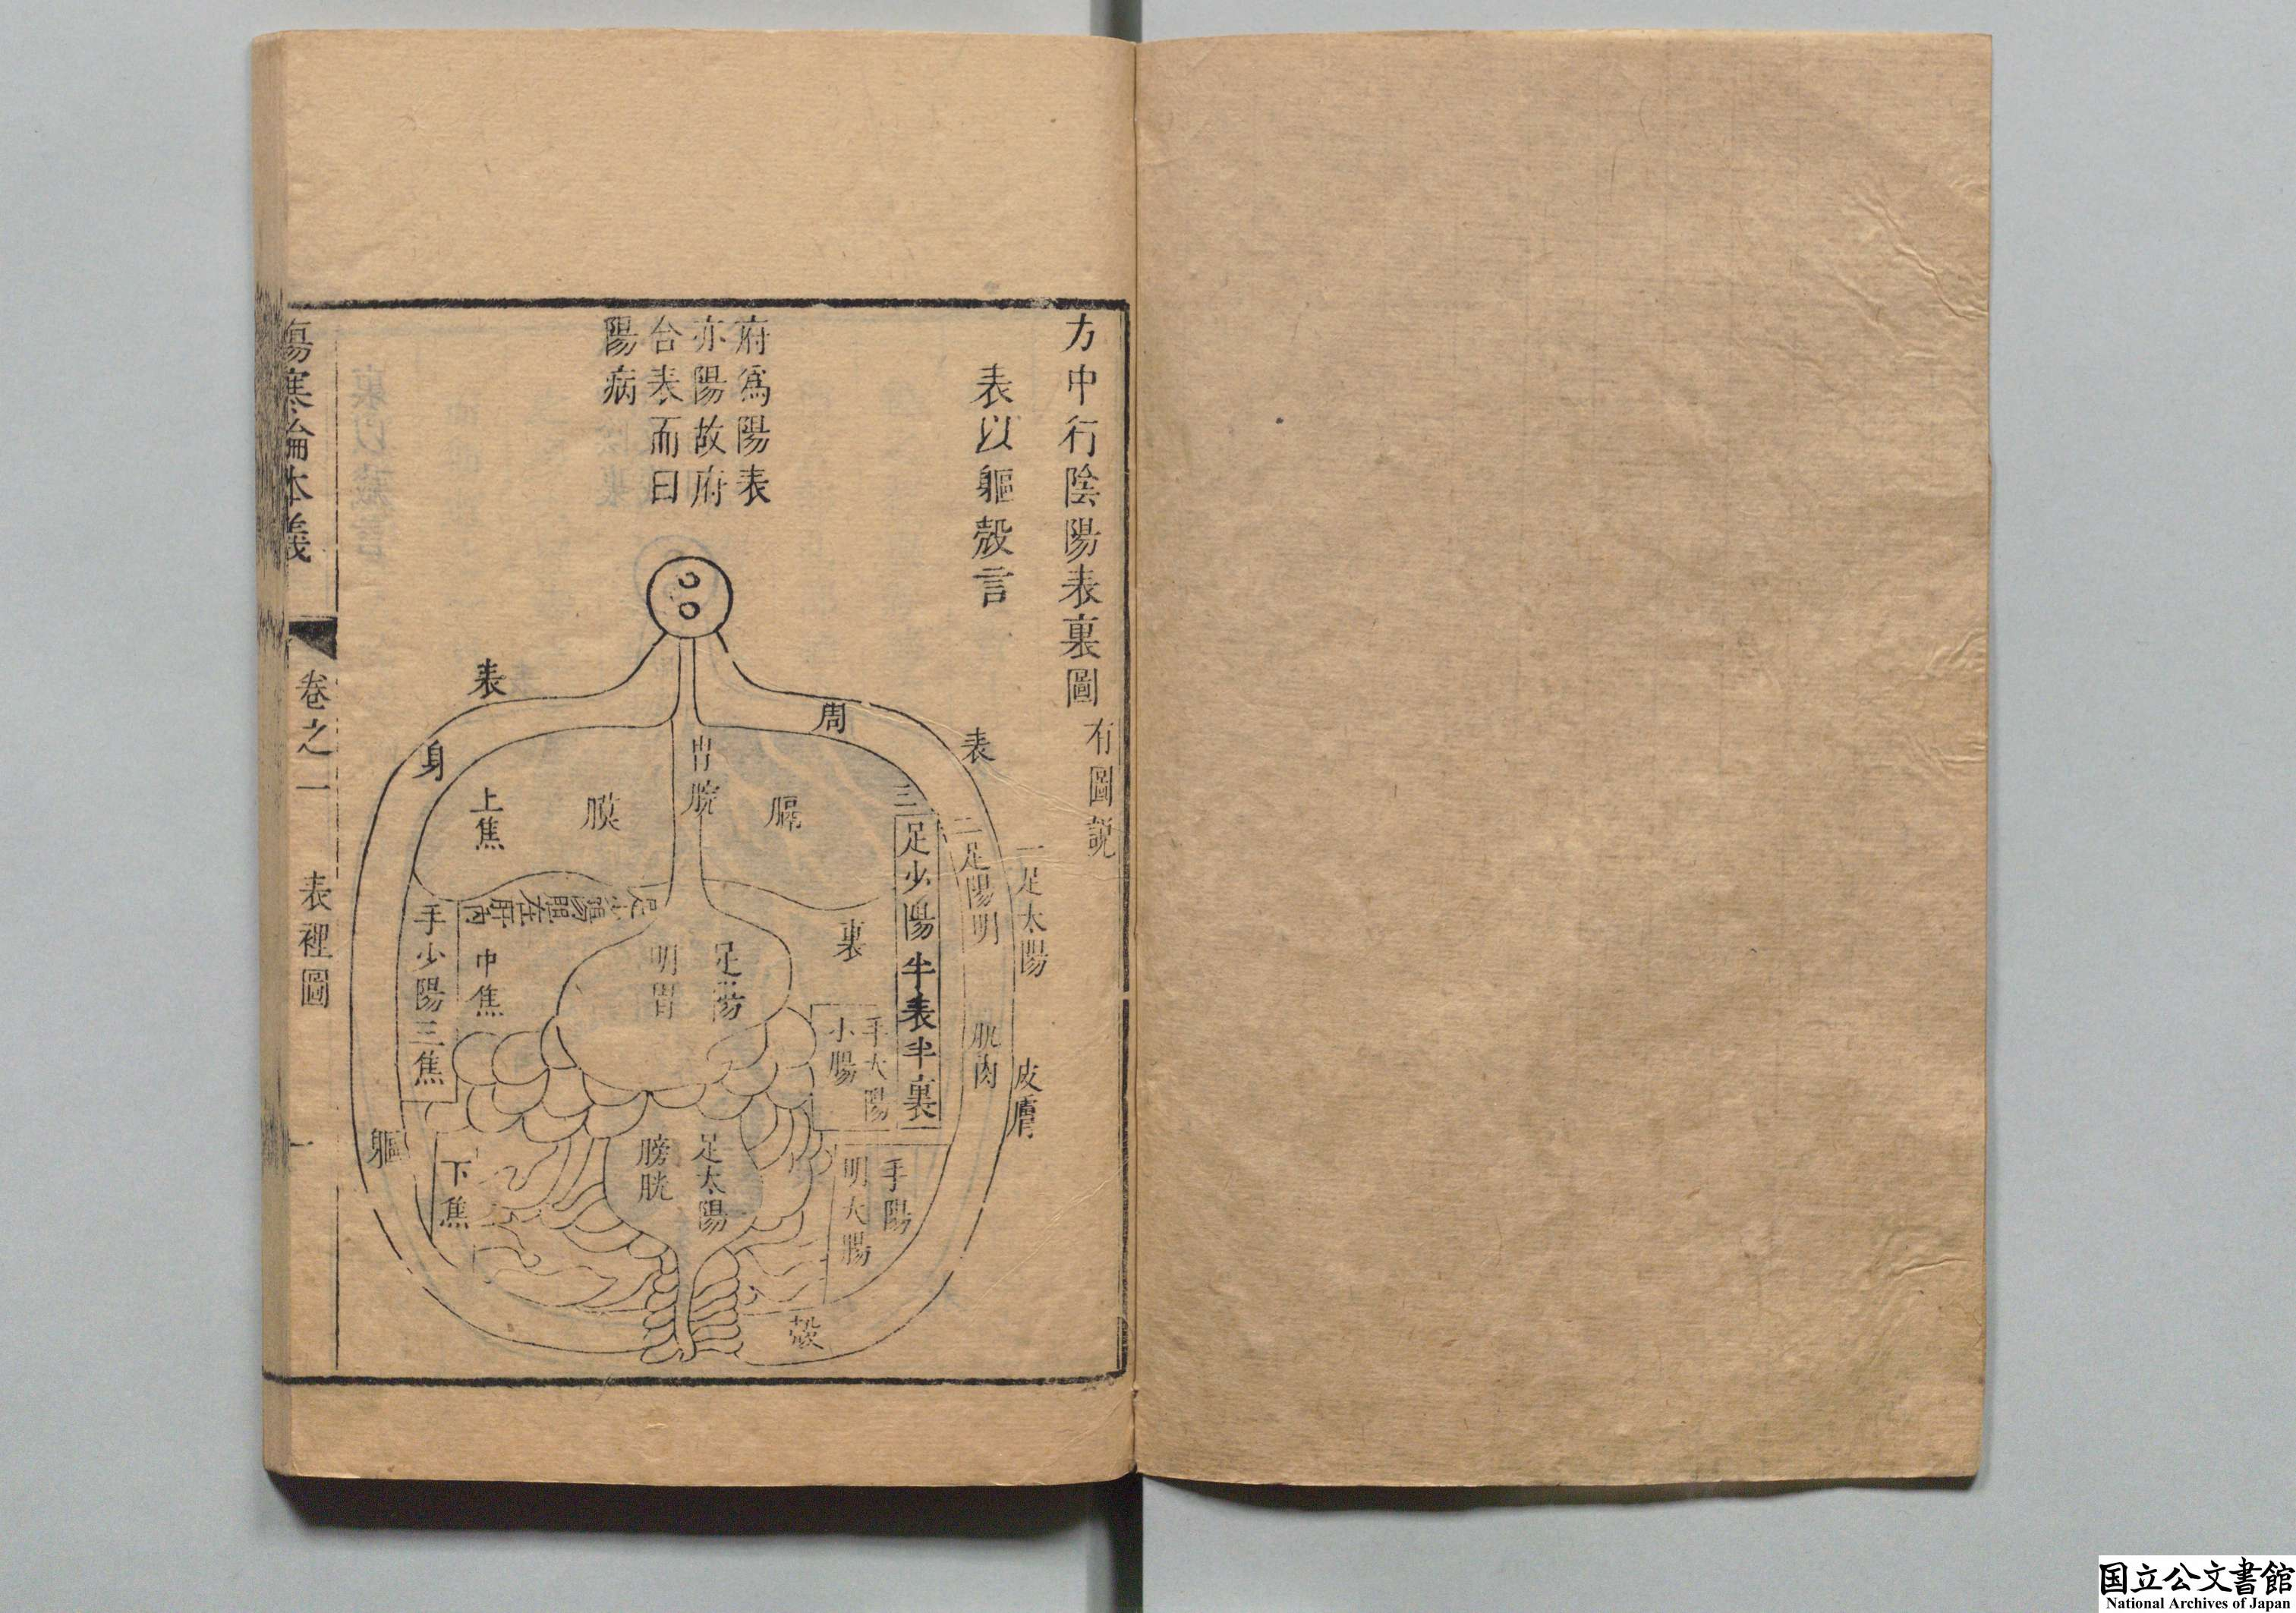 方中行陰陽表裏圖有圖説
表以軀殼言
府爲陽表
亦陽故府
合表而曰
陽病
表
周
表
身
一足太陽
皮膚
二足陽明
肌肉
三足少陽半表半裏
胃脘
膈
膜
上焦
足少陽胆在肝內
裏
手少陽三焦
中焦
足陽
明胃
手太陽
小腸
足太陽
膀胱
手陽
明大腸
下焦
軀
殼
傷寒論本義
卷之一
表裡圖
一
国立公文書館
National Archives of Japan